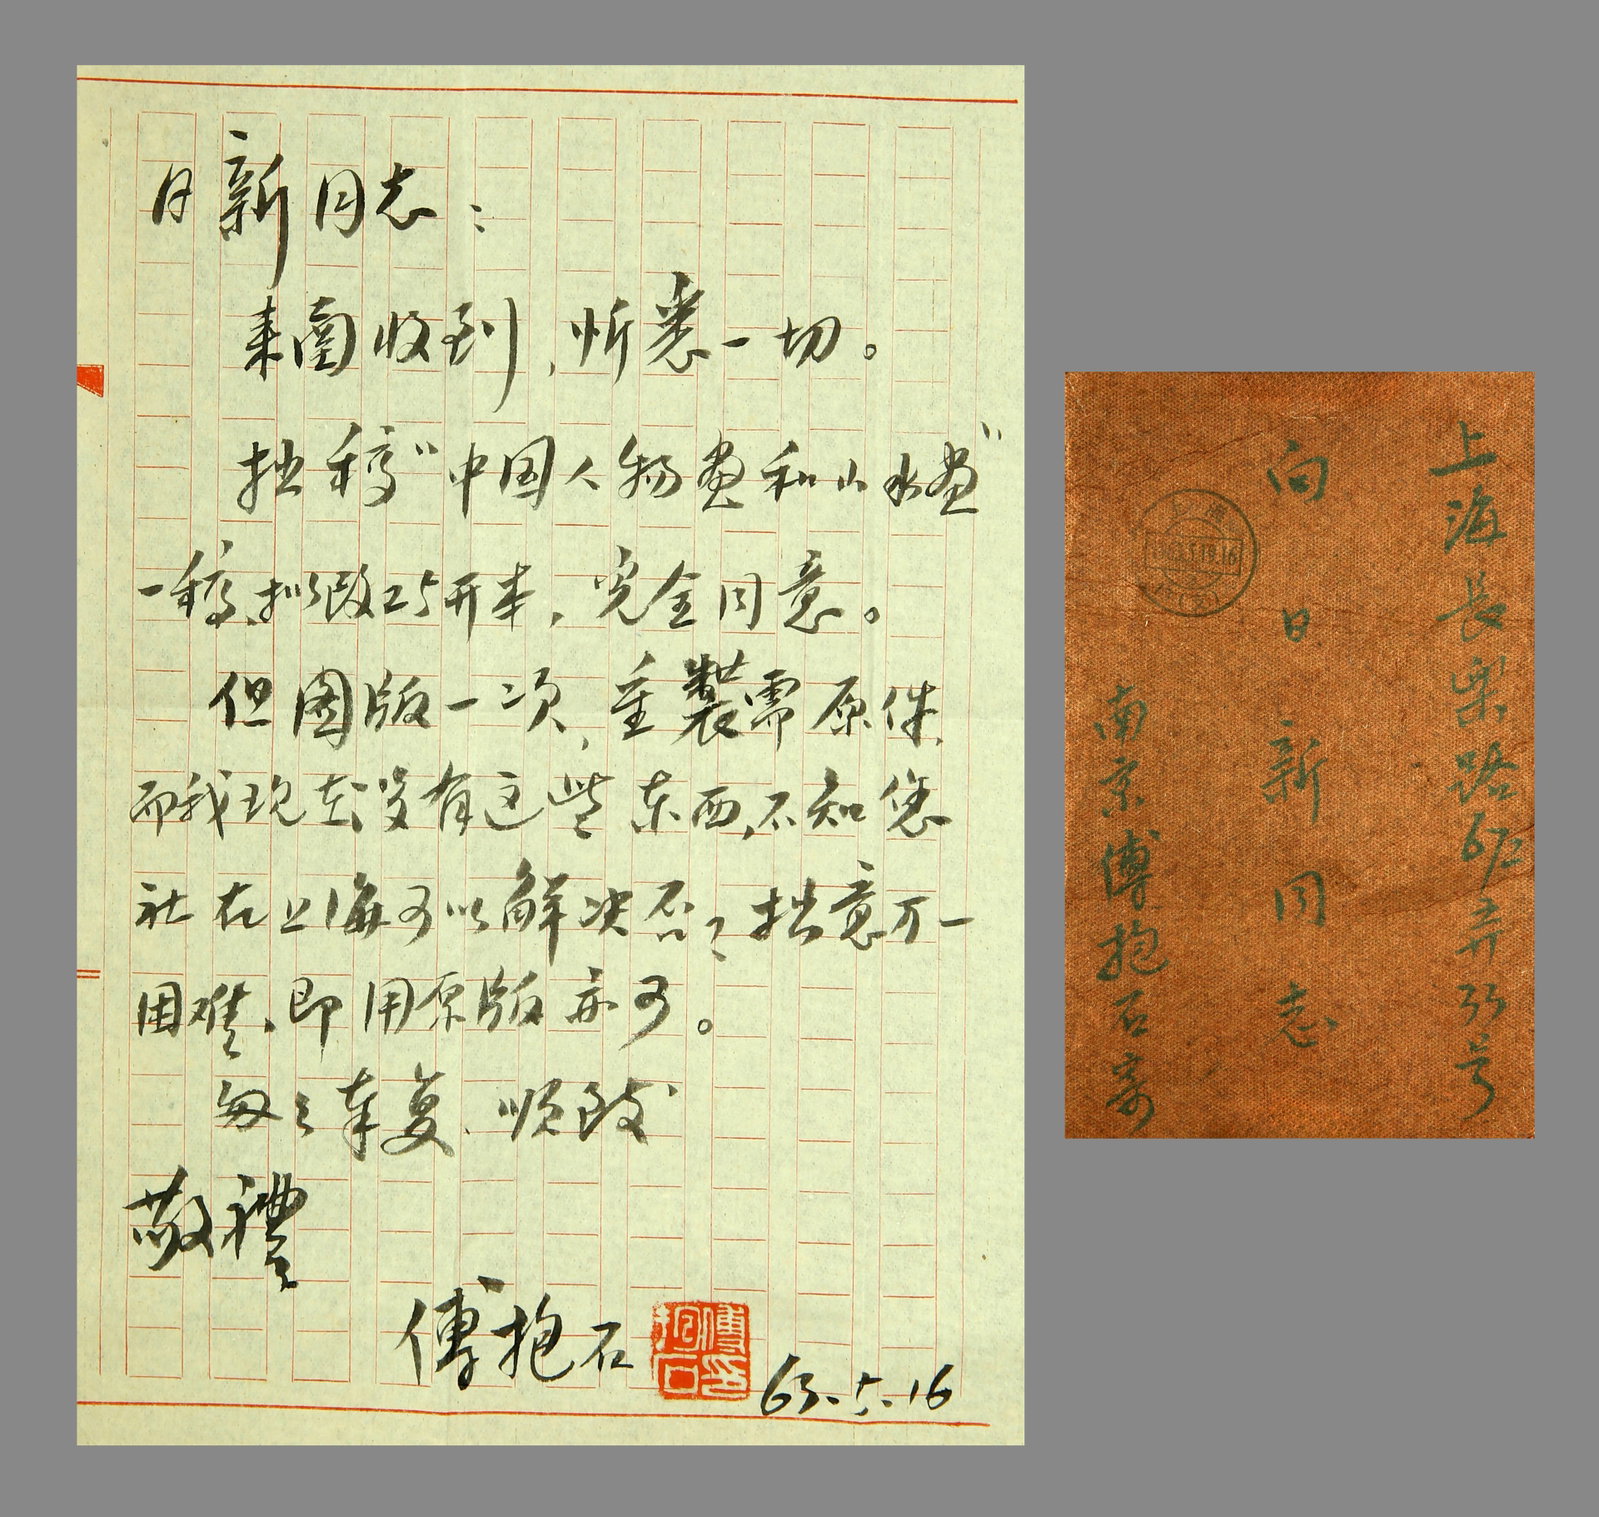 日新同志：
来函收到，忻悉一切。
拙稿"中国人物画和山水画"
一稿，拟改25开本，完全同意。
但图版一次，重製需原件，
而我现在没有这些东西，不知您
社在上海可以解决否？拙意万一
困难，即用原版亦可。
匆匆奉复，顺致
敬禮
傅抱石
傅抱石印
63.5.16
上海長樂路
弄33号
向日新同志
南京傅抱石寄